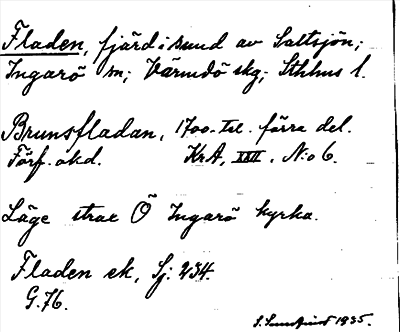 Fladen, fjärd i sund av Saltsjön;
Ingarö sn; Värmdö skg; Sthlms l.
Brunsfladan, 1700-tal. förra del.
Förf. okd. KrA, XXII, N:o 6.
Läge strax Ö Ingarö kyrka.
Fladen ek, Sj: 234.
G.76.
1935.